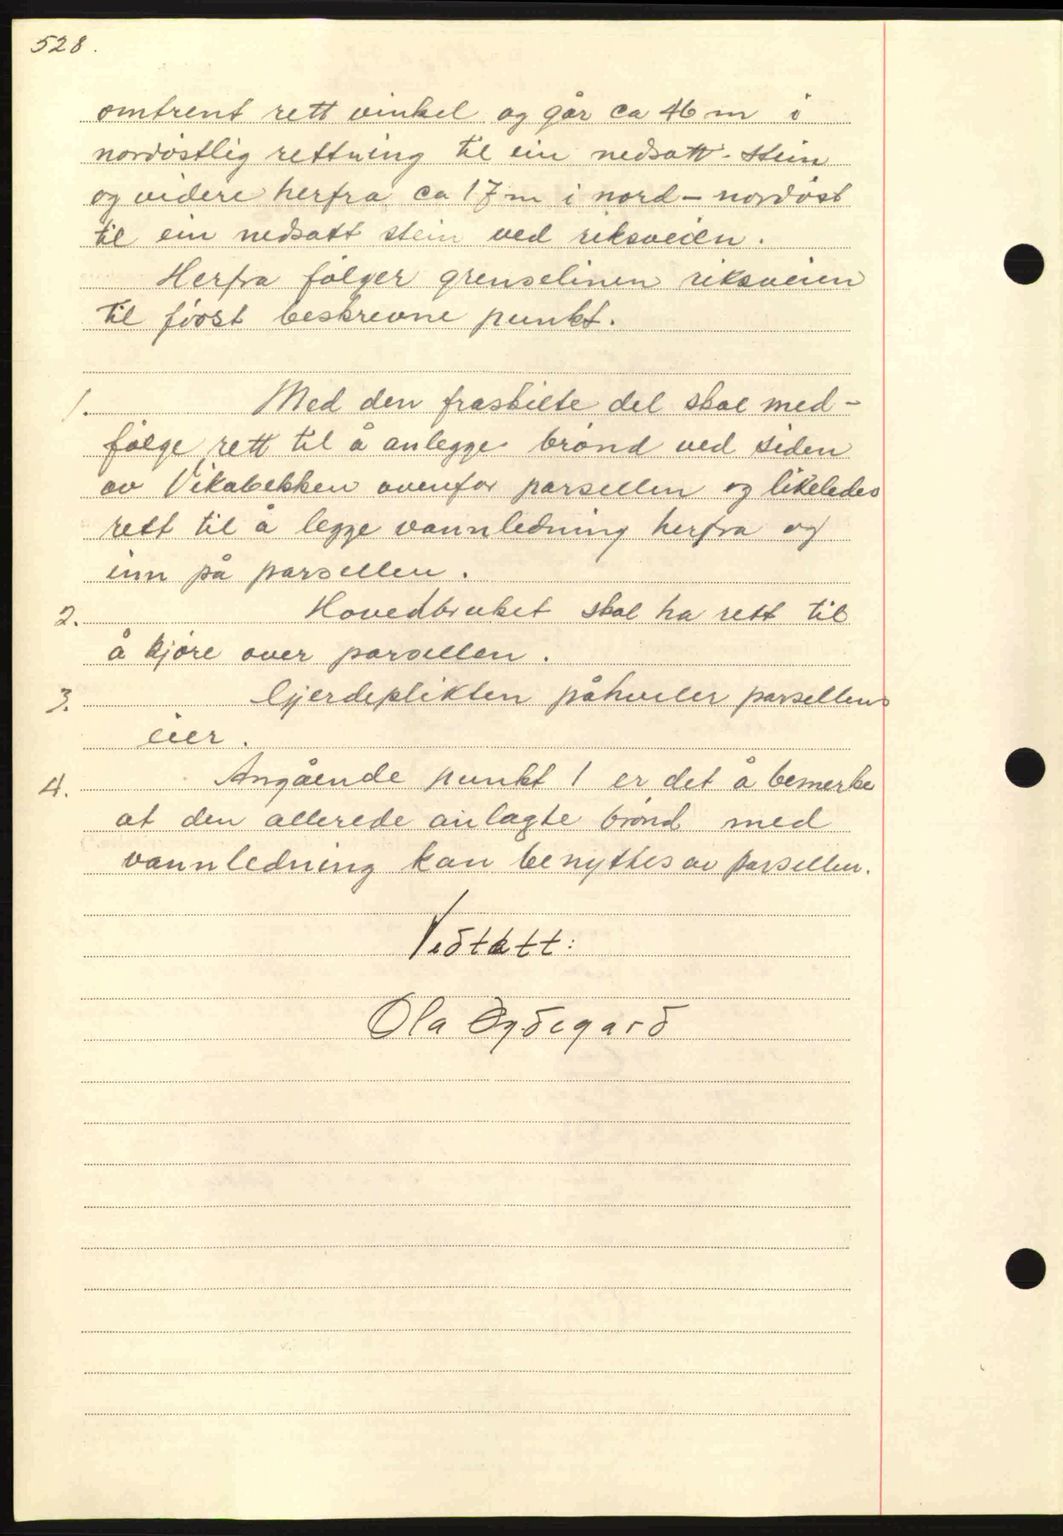 528.
omtrent rett vinkel og går ca 46 m i
nordöstlig rettning til ein nedsatt stein
og videre herfra ca 17 m i nord - nordöst
til ein nedsatt stein ved riksveien.
Herfra fölger grenselinen riksveien
til först beskrevne punkt.
1. Med den fraskilte del skal med-
fölge rett til å anlegge brönd ved siden
av Vikabekken ovenfor parsellen og likeledes
rett til å legge vannledning herfra og
inn på parsellen.
2. Hovedbruket skal ha rett til
å kjöre over parsellen.
3. Gjerdeplikten påhviler parsellens
eier.
4. Angående punkt 1 er det å bemerke
at den allerede anlagte brönd med
vannledning kan benyttes av parsellen.
Vedtatt:
Ola Öydegard